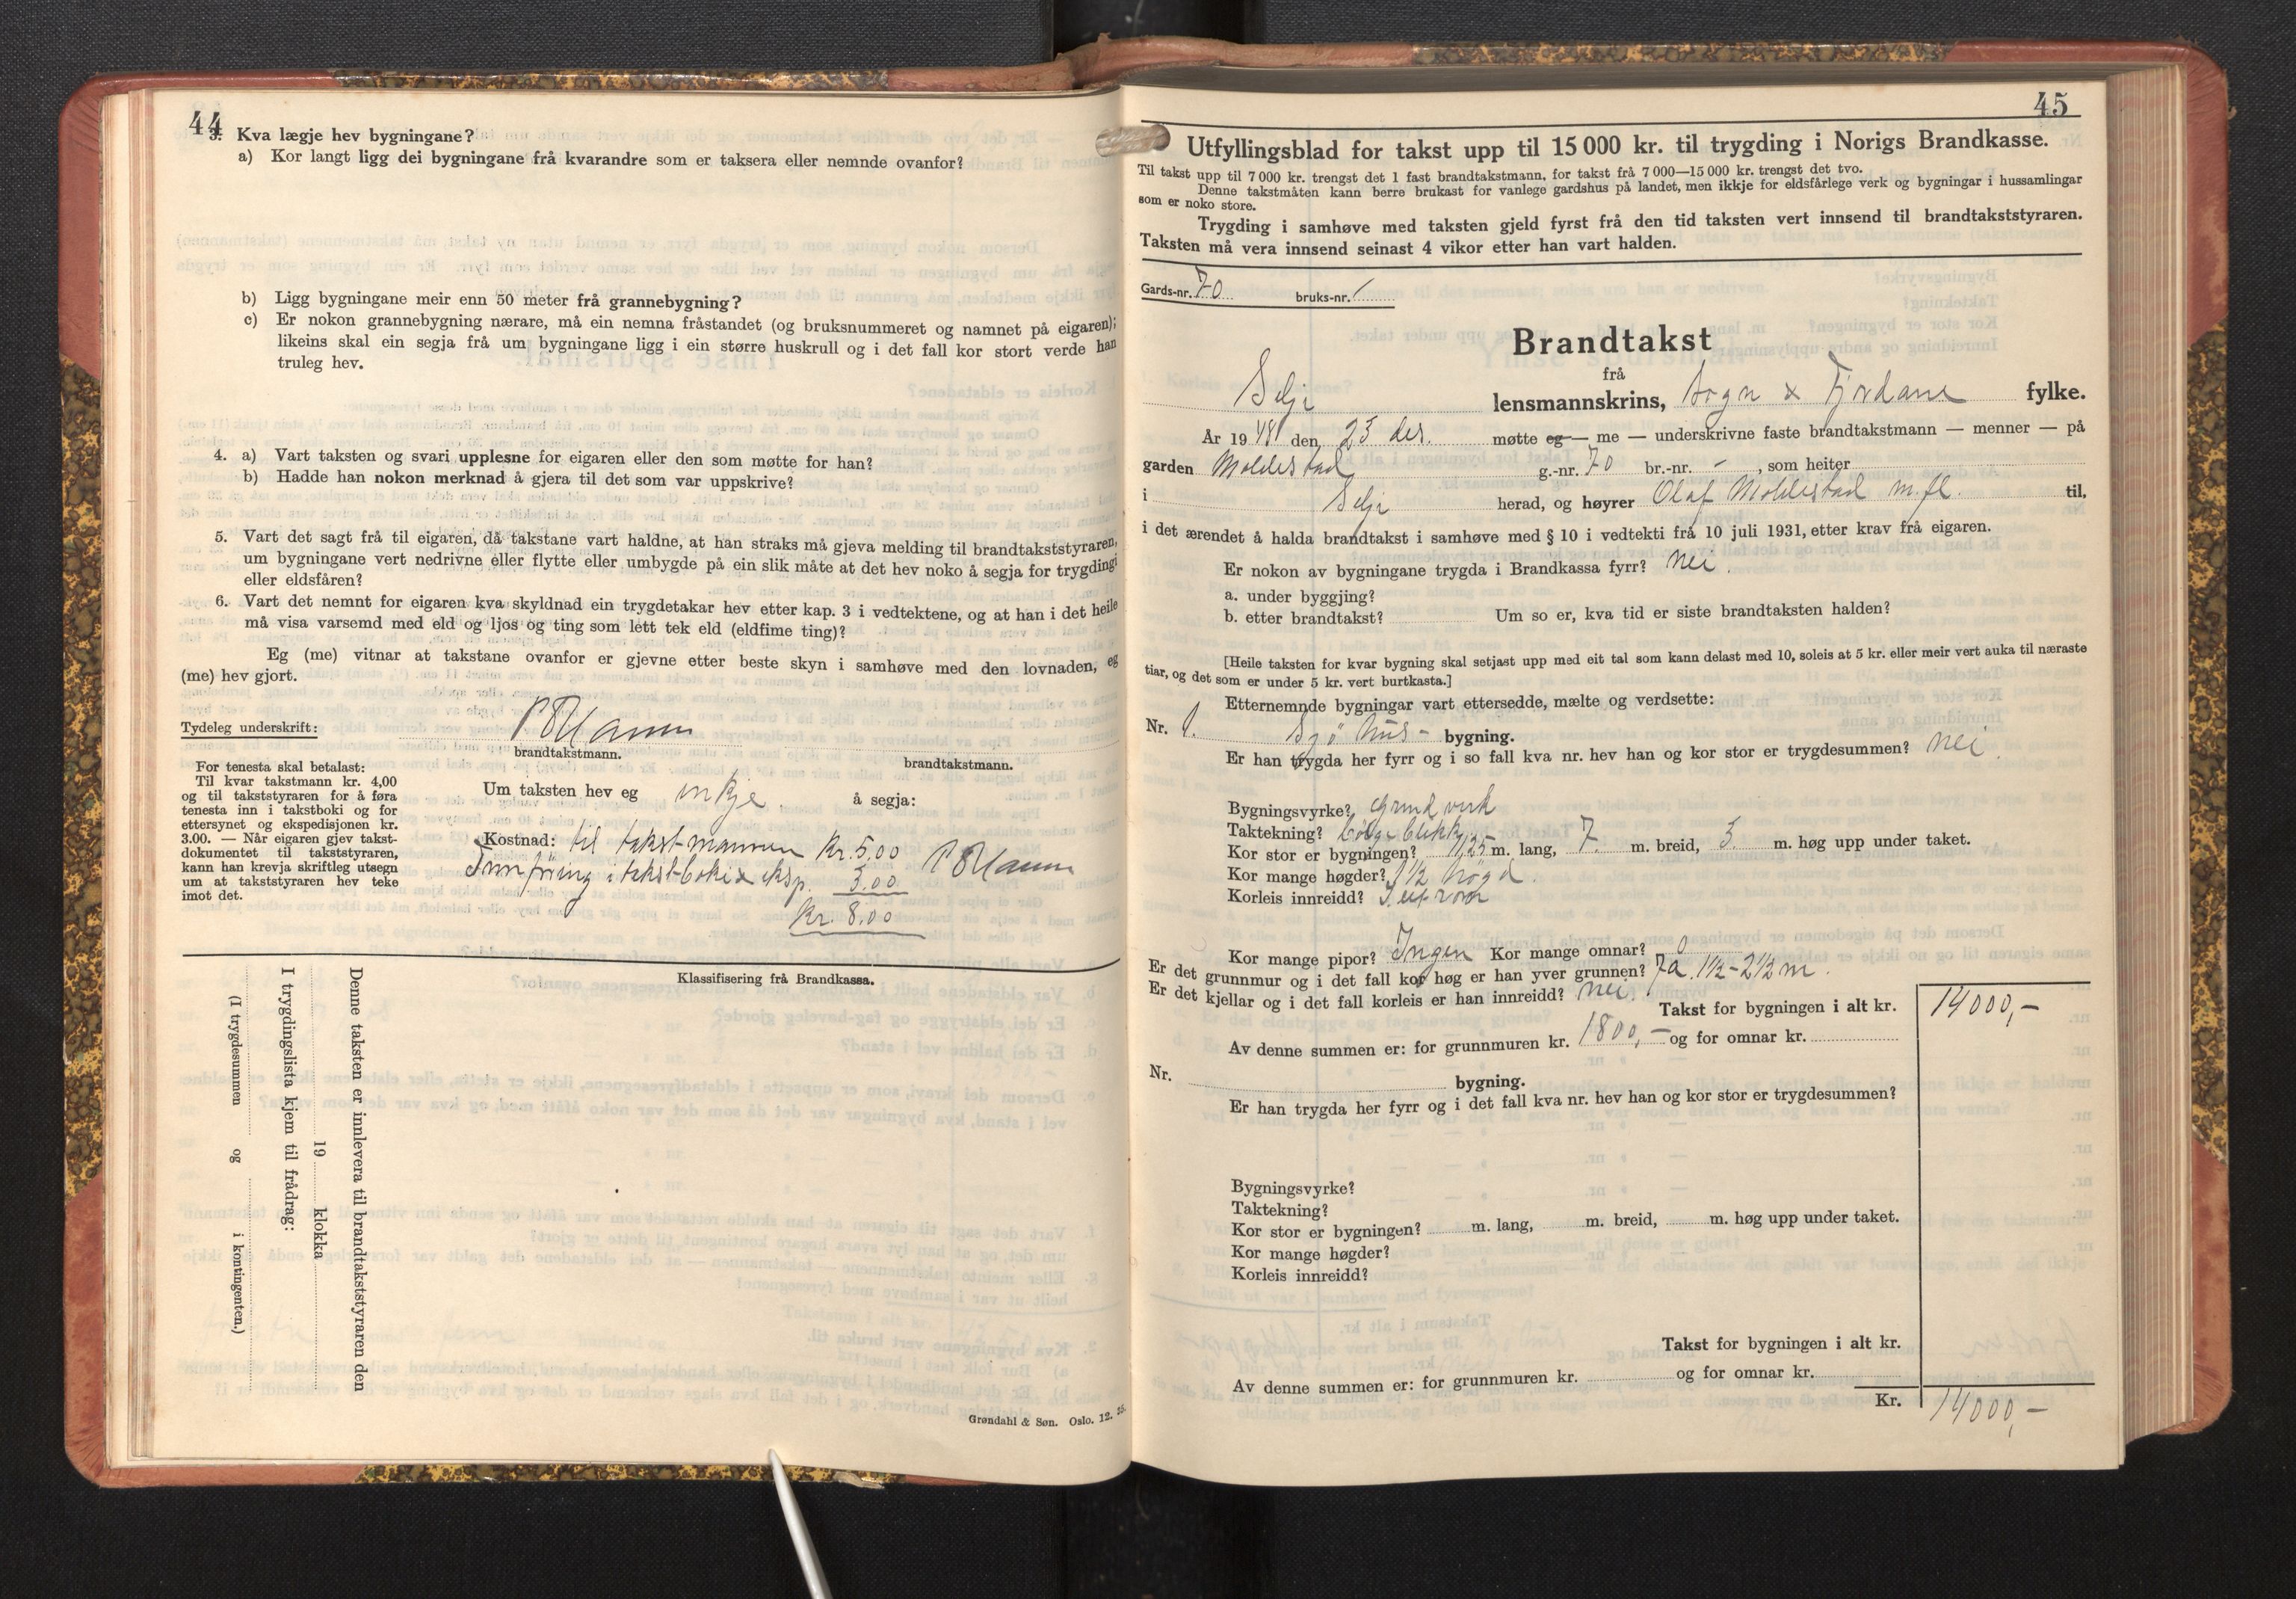 44
3. Kva lægje hev bygningane?
a) Kor langt ligg dei bygningane frå kvarandre som er taksera eller nemnde ovanfor?
b) Ligg bygningane meir enn 50 meter frå grannebygning?
c) Er nokon grannebygning nærare, må ein nemna fråstandet (og bruksnummeret og namnet på eigaren);
likeins skal ein segja frå um bygningane ligg i ein større huskrull og i det fall kor stort verde han
truleg hev.
4. a) Vart taksten og svari upplesne for eigaren eller den som møtte for han?
b) Hadde han nokon merknad å gjera til det som var uppskrive?
5. Vart det sagt frå til eigaren, då takstane vart haldne, at han straks må gjeva melding til brandtakststyraren,
um bygningane vert nedrivne eller flytte eller umbygde på ein slik måte at det hev noko å segja for trygdingi
eller eldsfåren?
6. Vart det nemnt for eigaren kva skyldnad ein trygdetakar hev etter kap. 3 i vedtektene, og at han i det heile
må visa varsemd med eld og ljos og ting som lett tek eld (eldfime ting)?
Eg (me) vitnar at takstane ovanfor er gjevne etter beste skyn i samhøve med den lovnaden, eg
(me) hev gjort.
Tydeleg underskrift:
brandtakstmann.
brandtakstmann.
For tenesta skal betalast:
Til kvar takstmann kr. 4,00
og til takststyraren for å føra
tenesta inn i takstboki og for
ettersynet og ekspedisjonen kr.
3.00. — Når eigaren gjev takst-
dokumentet til takststyraren,
kann han krevja skriftleg utsegn
um at takststyraren hev teke
imot det.
Um taksten hev eg inkje å segja:
Kostnad: til takstmannen Kr. 5,00
Innföring i takstboki & eksp. 3.00
Kr. 8.00
Klassifisering frå Brandkassa.
Denne taksten er innlevera til brandtakststyraren den
19 klokka
I trygdingslista kjem til frådrag:
(I trygdesummen og i kontingenten.)
Grøndahl & Søn. Oslo. 12. 35.
45
Utfyllingsblad for takst upp til 15 000 kr. til trygding i Norigs Brandkasse.
Til takst upp til 7 000 kr. trengst det 1 fast brandtakstmann, for takst frå 7 000—15 000 kr. trengst det tvo.
Denne takstmåten kann berre brukast for vanlege gardshus på landet, men ikkje for eldsfårlege verk og bygningar i hussamlingar
som er noko store.
Trygding i samhøve med taksten gjeld fyrst frå den tid taksten vert innsend til brandtakststyraren.
Taksten må vera innsend seinast 4 vikor etter han vart halden.
Gards-nr. 70 bruks-nr. -
Brandtakst
frå
Selje lensmannskrins, Sogn & Fjordane fylke.
År 1948 den 23 des. møtte eg — me — underskrivne faste brandtakstmann — menner — på
garden Moldestad g.-nr. 70 br.-nr. - , som heiter
i Selje herad, og høyrer Olaf Moldestad m.fl. til,
i det ærendet å halda brandtakst i samhøve med § 10 i vedtekti frå 10 juli 1931, etter krav frå eigaren.
Er nokon av bygningane trygda i Brandkassa fyrr? nei.
a. under byggjing?
b. etter brandtakst? Um so er, kva tid er siste brandtaksten halden?
[Heile taksten for kvar bygning skal setjast upp med eit tal som kann delast med 10, soleis at 5 kr. eller meir vert auka til næraste
tiar, og det som er under 5 kr. vert burtkasta.]
Etternemnde bygningar vart ettersedde, mælte og verdsette:
Nr. 1. Sjöhus - bygning.
Er han trygda her fyrr og i so fall kva nr. hev han og kor stor er trygdesummen? nei
Bygningsvyrke? Grindverk
Taktekning? Bölgeblikk
Kor stor er bygningen? 11,25 m. lang, 7. m. breid, 3. m. høg upp under taket.
Kor mange høgder? 1 1/2 högd.
Korleis innreidd? I eit rom
Kor mange pipor? Ingen Kor mange omnar? 0
Er det grunnmur og i det fall kor høg er han yver grunnen? Ja. 1½-2½ m.
Er det kjellar og i det fall korleis er han innreidd? nei.
Takst for bygningen i alt kr. 14000,-
Av denne summen er: for grunnmuren kr. 1800,- og for omnar kr.
Nr. bygning.
Er han trygda her fyrr og i det fall kva nr. hev han og kor stor er trygdesummen?
Bygningsvyrke?
Taktekning?
Kor stor er bygningen? m. lang, m. breid, m. høg upp under taket.
Kor mange høgder?
Korleis innreidd?
Takst for bygningen i alt kr.
Av denne summen er: for grunnmuren kr. og for omnar kr.
Kr. 14000,-